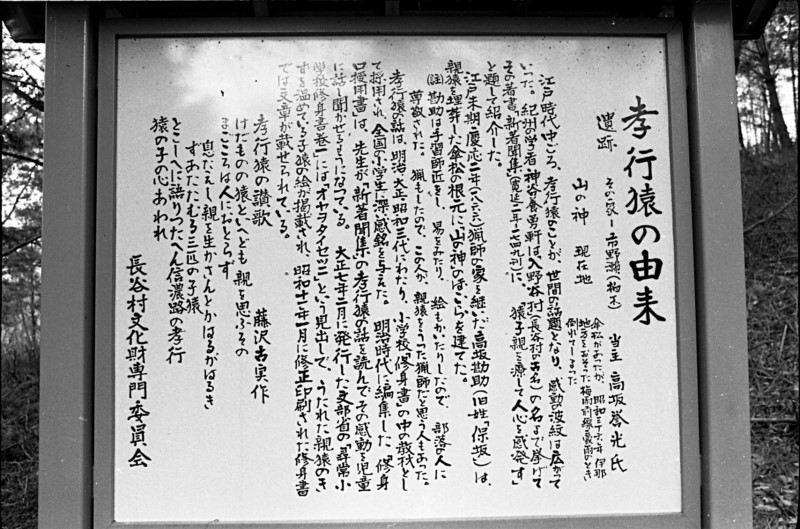 孝行猿の由来
遺跡 その家ー市野瀬(柏木) 当主 高坂誉光氏
山の神 現在地
傘松があったが、昭和三十六年伊那
地方をおそった梅雨前線の豪雨のとき
倒れてしまった
江戸時代中ごろ、孝行猿のことが、世間の話題となり、感動の波紋は広がって
いった。紀州の学者神谷養勇軒は、入野谷村(長谷村の古名)の名まで挙げて
その著書「新著聞集」(寛延二年ー一七四九刊)に、「猿子親を療して人心を感発す」
と題して紹介した。
江戸末期、慶応二年(一八六六)猟師の家を継いだ高坂勘助(旧姓「保坂」)は、
親猿を埋葬した傘松の根元に「山の神のほこら」を建てた。
(註)勘助は手習師匠をし、易をみたり、絵もかいたりしたので、部落の人に
尊敬された。猟もしたので、この人が、親猿をうった猟師だと思う人もあった。
孝行猿の話は、明治、大正、昭和三代にわたり、小学校「修身書」の中の教材とし
て採用され、全国の小学生に深い感銘を与えた。明治時代に編集した「修身
口授用書」は、先生が「新著聞集」の孝行猿の話を読んで、その感動を児童
に話し聞かせるようになっている。大正七年二月に発行した文部省の「尋常小
学校修身書巻一」には「オヤヲタイセツニ」という見出しで、うたれた親猿のき
ずを温めている子猿の絵が掲載され、昭和十一年一月に修正印刷された修身書
では文章が載せられている。
孝行猿の讃歌 藤沢古実作
けだものの猿といへども親を思ふその
まごころは人におとらず
息たえし親を生かさんとかはるがはるき
ずあたたむる三匹の子猿
とこしへに語りつたへん信濃路の孝行
猿の子の心あわれ
長谷村文化財専門委員会